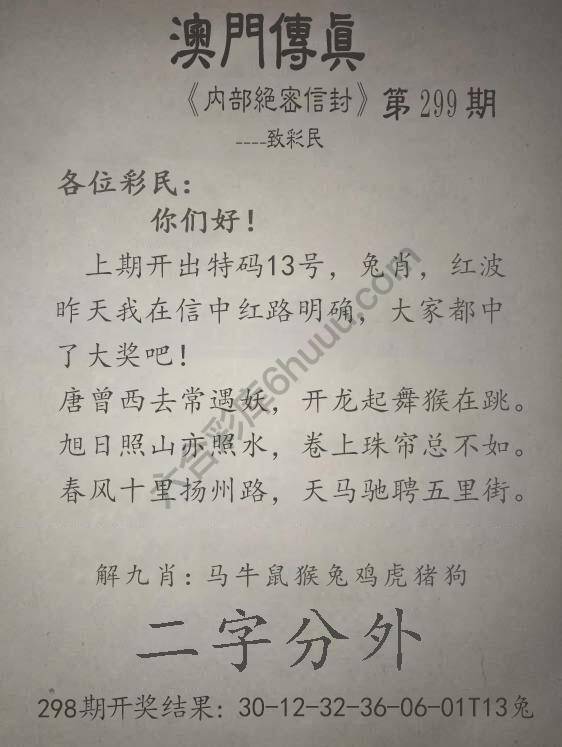 澳門傳眞
《内部絕密信封》第299期
----致彩民
各位彩民：
你们好！
上期开出特码13号，兔肖，红波
昨天我在信中红路明确，大家都中
了大奖吧！
唐曾西去常遇妖，开龙起舞猴在跳。
旭日照山亦照水，卷上珠帘总不如。
春风十里扬州路，天马驰聘五里街。
六合彩库6huuu.com
解九肖：马牛鼠猴兔鸡虎猪狗
二字分外
298期开奖结果：30-12-32-36-06-01T13兔